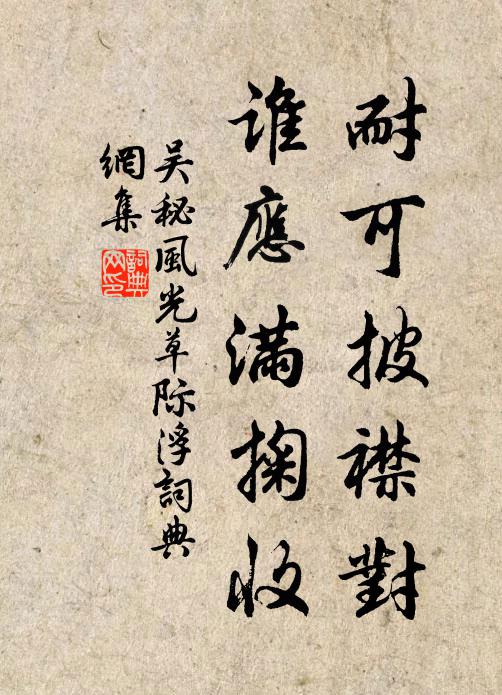 耐可披襟對
誰應滿掬收
吳秘風光草際浮詞典
網集
詞典
网印